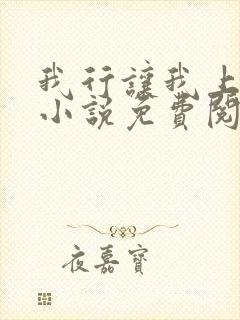 我行讓我上
小說免費閱
夜嘉寶